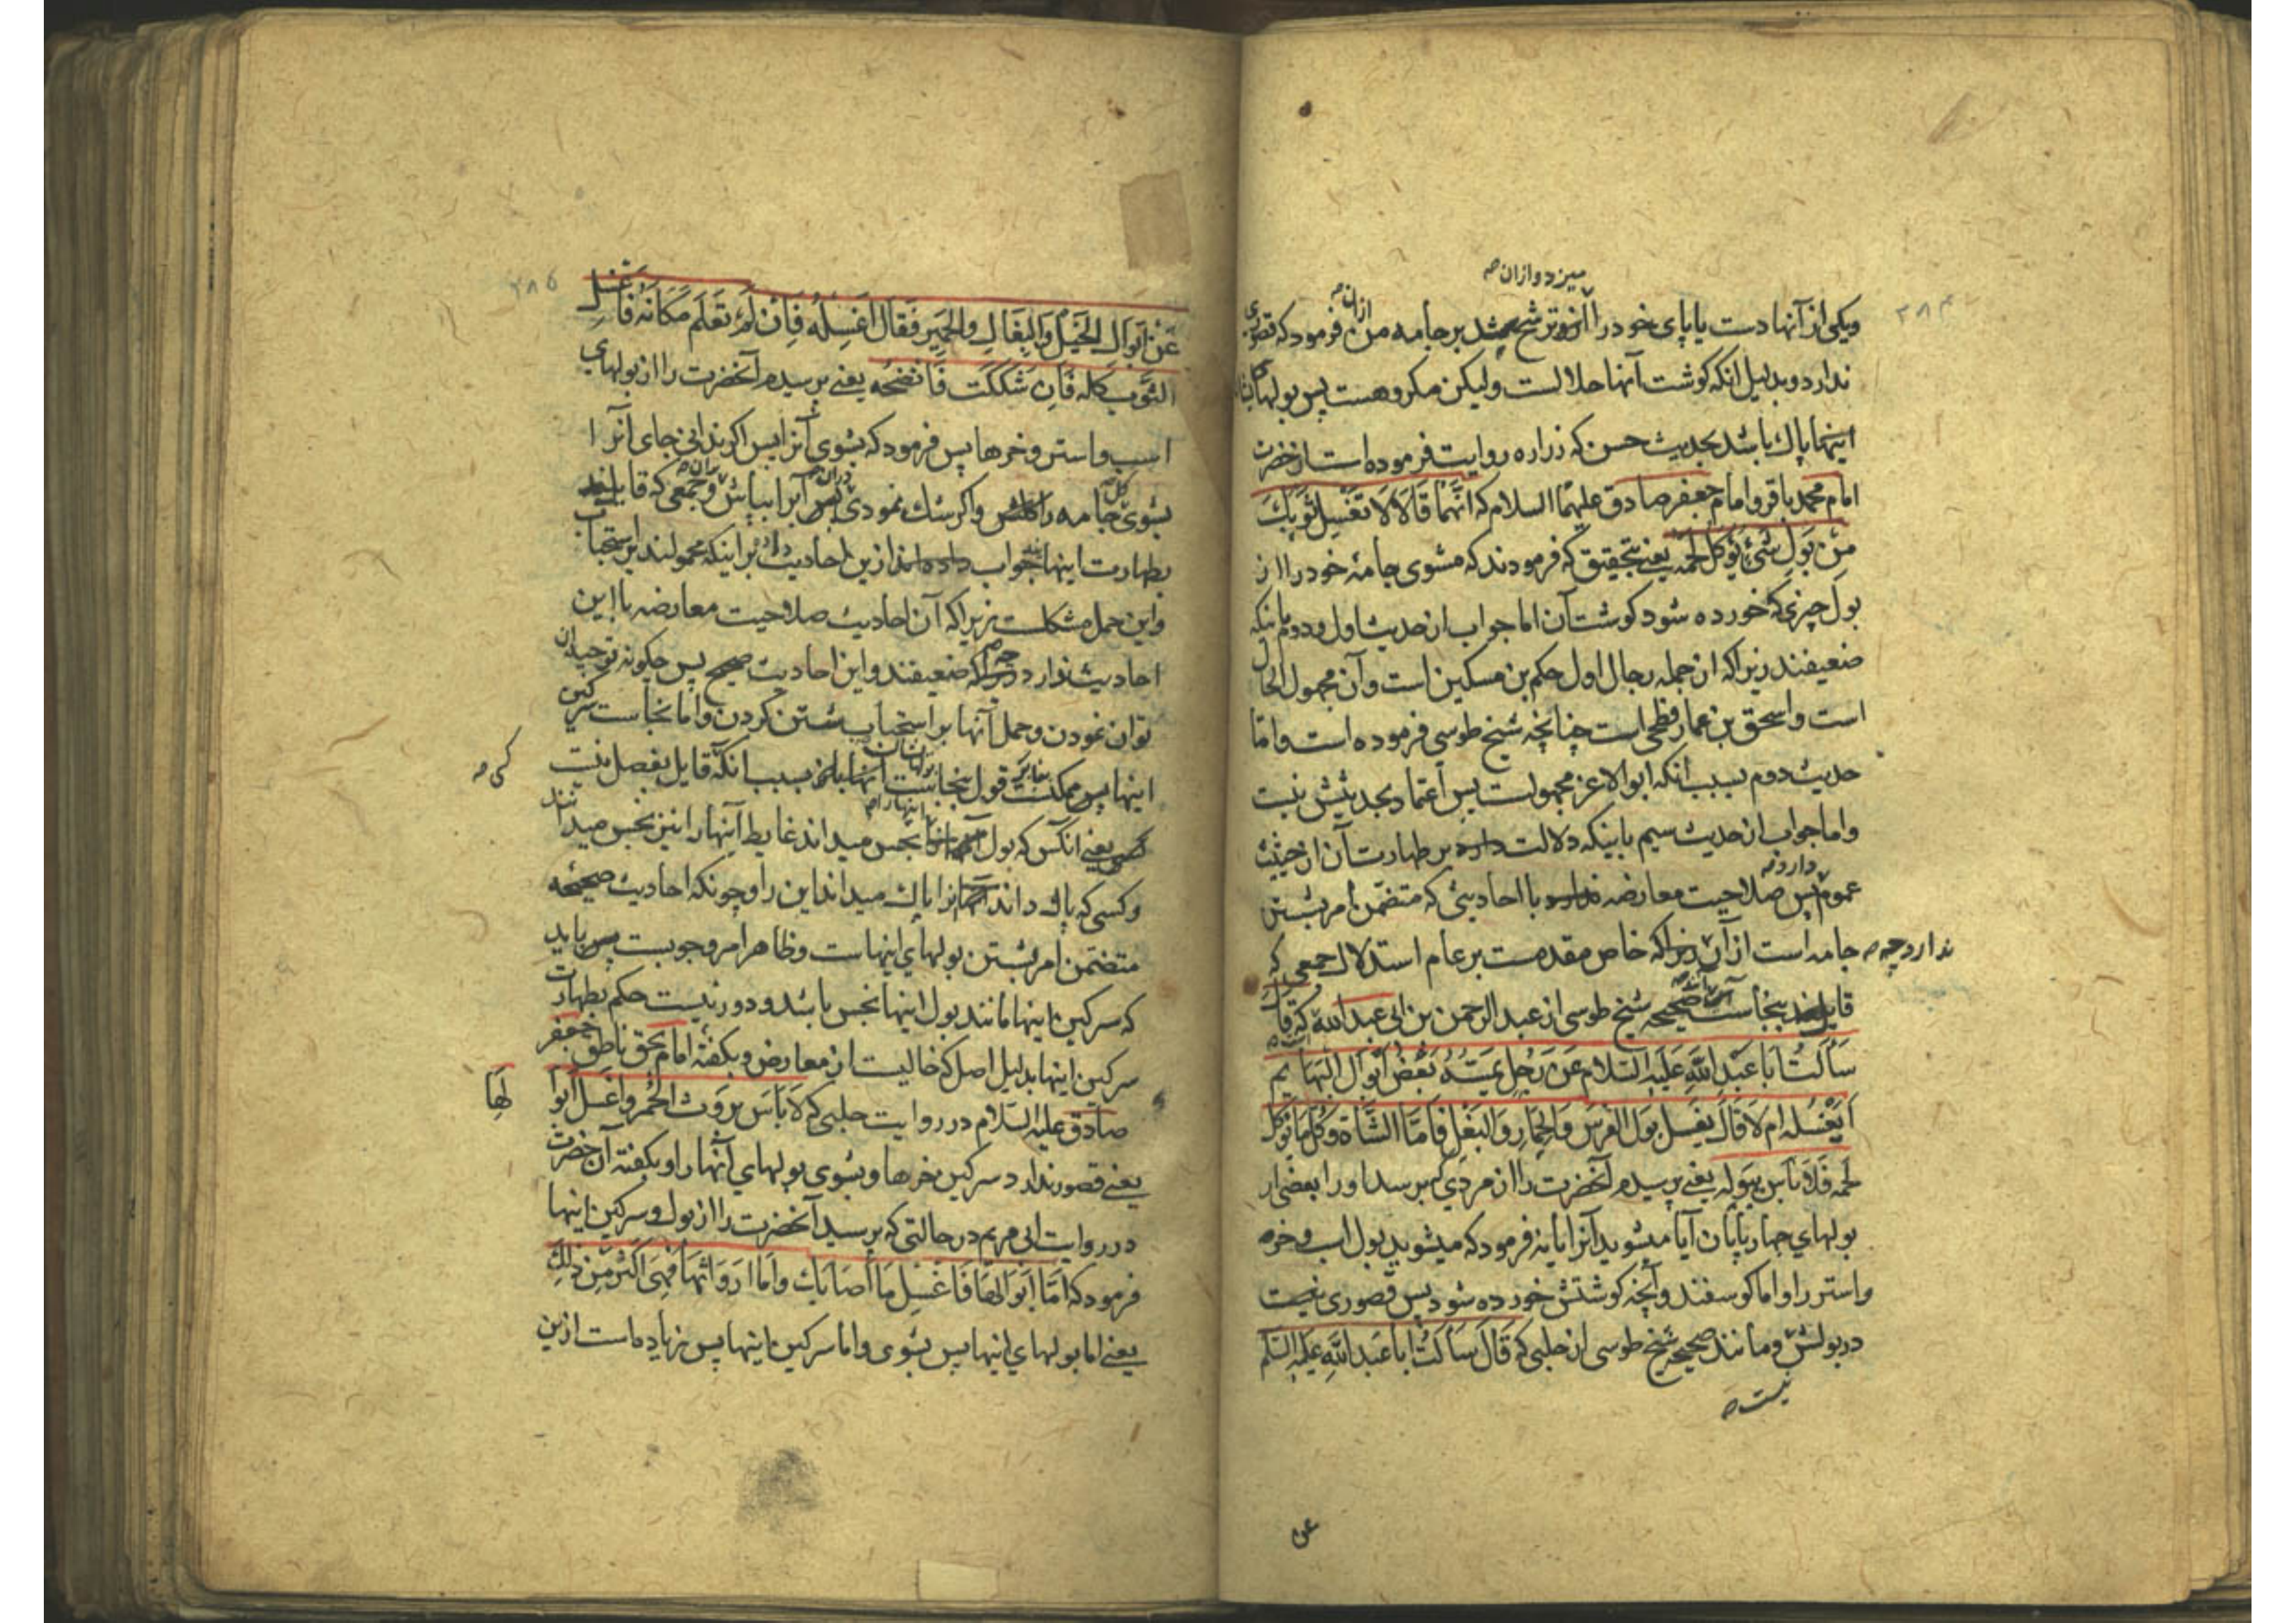 ۲۸۴
میزد و ازان صح
ویکی از آنها دست یا پای خود را بر جامه من ازان صح فرمود که قصوری
ندارد و بدلیل انکه کوشت آنها حلالست ولیکن مکروهست پس بولهای
اینها پاک باشد بحدیث حسن که زراره روایت فرموده است از حضرت
امام محمد باقر و امام جعفر صادق علیهما السلام که انّهما قالا لا تغسل ثوبک
من بول شئ یؤکل لحمه یعنی بتحقیق که فرمودند که مشوی جامهٔ خود را از
بول چیزی که خورده شود کوشت آن اما جواب از حدیث اول و دوم بانکه
ضعیفند زیرا که از جمله رجال اول حکم بن مسکین است و آن مجهول الحال
است و اسحق بن عمار فطحی است چنانچه شیخ طوسی فرموده است و امّا
حدیث دوم بسبب انکه ابوالاعز مجهولست پس اعتماد بحدیثش نیست
و اما جواب از حدیث سیم باینکه دلالت دارد بر طهارت آن از حیثیت
عموم دارد صح پس صلاحیت معارضه ندارد با احادیثی که متضمّن امر بشستن
ندارد چه صح جامه است از آن زیرا که خاص مقدمست بر عام استدلال جمعی که
قایلند بنجاست صحیحهٔ شیخ طوسی از عبدالرحمن بن ابی عبدالله که قال
سَألتُ اَبا عَبدِ اللهِ عَلَیهِ السّلام عَن رَجُلٍ یَمَسُّهُ بَعضُ اَبوالِ البَهایم
اَیَغْسِلُه ام لا قالَ یغسل بول الفرس والحمار والبغل فامّا الشاة وکلّ ما یؤکل
لحمه فلا باس ببوله یعنی پرسیدم آنحضرت را از مردی که برسد او را بعضی از
بولهای چهارپایان آیا میشوید آنرا یا نه فرمود که میشوید بول اسب و خر
و استر را و اما کوسفند و آنچه کوشتش خورده شود پس قصوری نیست
در بولش و مانند صحیحهٔ شیخ طوسی از حلبی که قالَ سَألتُ ابا عبدالله علیه السلم
نیست صح
عن
۲۸۵
عَن اَبوال الخیل والبغال والحمیر فقال اغسِله فان لَم تعلم مکانه فاغسل
الثّوب کلّه فان شککت فانضحه یعنی پرسیدم آنحضرت را از بولهای
اسب و استر و خرها پس فرمود که بشوی آنرا پس اکر ندانی جای آنرا
بشوی کل جامه را و اکر شک نمودی دران پس آبرا بپاش بران صح و جمعی که قایلند
بطهارت اینها جواب داده‌اند ازین احادیث باینکه محمولند بر استحباب
و این حمل مشکلست زیرا که آن احادیث صلاحیت معارضه با این
احادیث ندارد چه صح که ضعیفند و این احادیث صحیح پس چکونه توجیه آن
توان نمودن و حمل آنها بر استحباب شستن کردن و امّا نجاست سرکین
اینها پس ممکنست قول بنجاست بسبب انکه قایل بفصل نیست
کسی صح
یعنی انکس که بول اینها را صح نجس میداند غایط آنها را نیز نجس میداند
و کسی که پاک داند آنرا پاک میداند این را و چونکه احادیث صحیحه
متضمّن امر بشستن بولهای اینهاست و ظاهر امر وجوبست پس باید
که سرکین اینها مانند بول اینها نجس باشد و دور نیست حکم بطهارت
سرکین اینها بدلیل اصل که خالیست از معارض و بکفتهٔ امام بحق ناطق جعفر
صادق علیه السّلام در روایت حلبی که لا باس بروث الحُمر واغسل ابوا
لها
یعنی قصور ندارد سرکین خرها و بشوی بولهای آنها را و بکفته آن حضرت
در روایت ابی مریم در حالتی که پرسید آنحضرت را از بول و سرکین اینها
فرمود که امّا ابوالها فاغسل ما اصابک و اما ارواثها فهی اکثر من ذلک
یعنی اما بولهای اینها پس بشوی و اما سرکین اینها پس زیاده است ازین